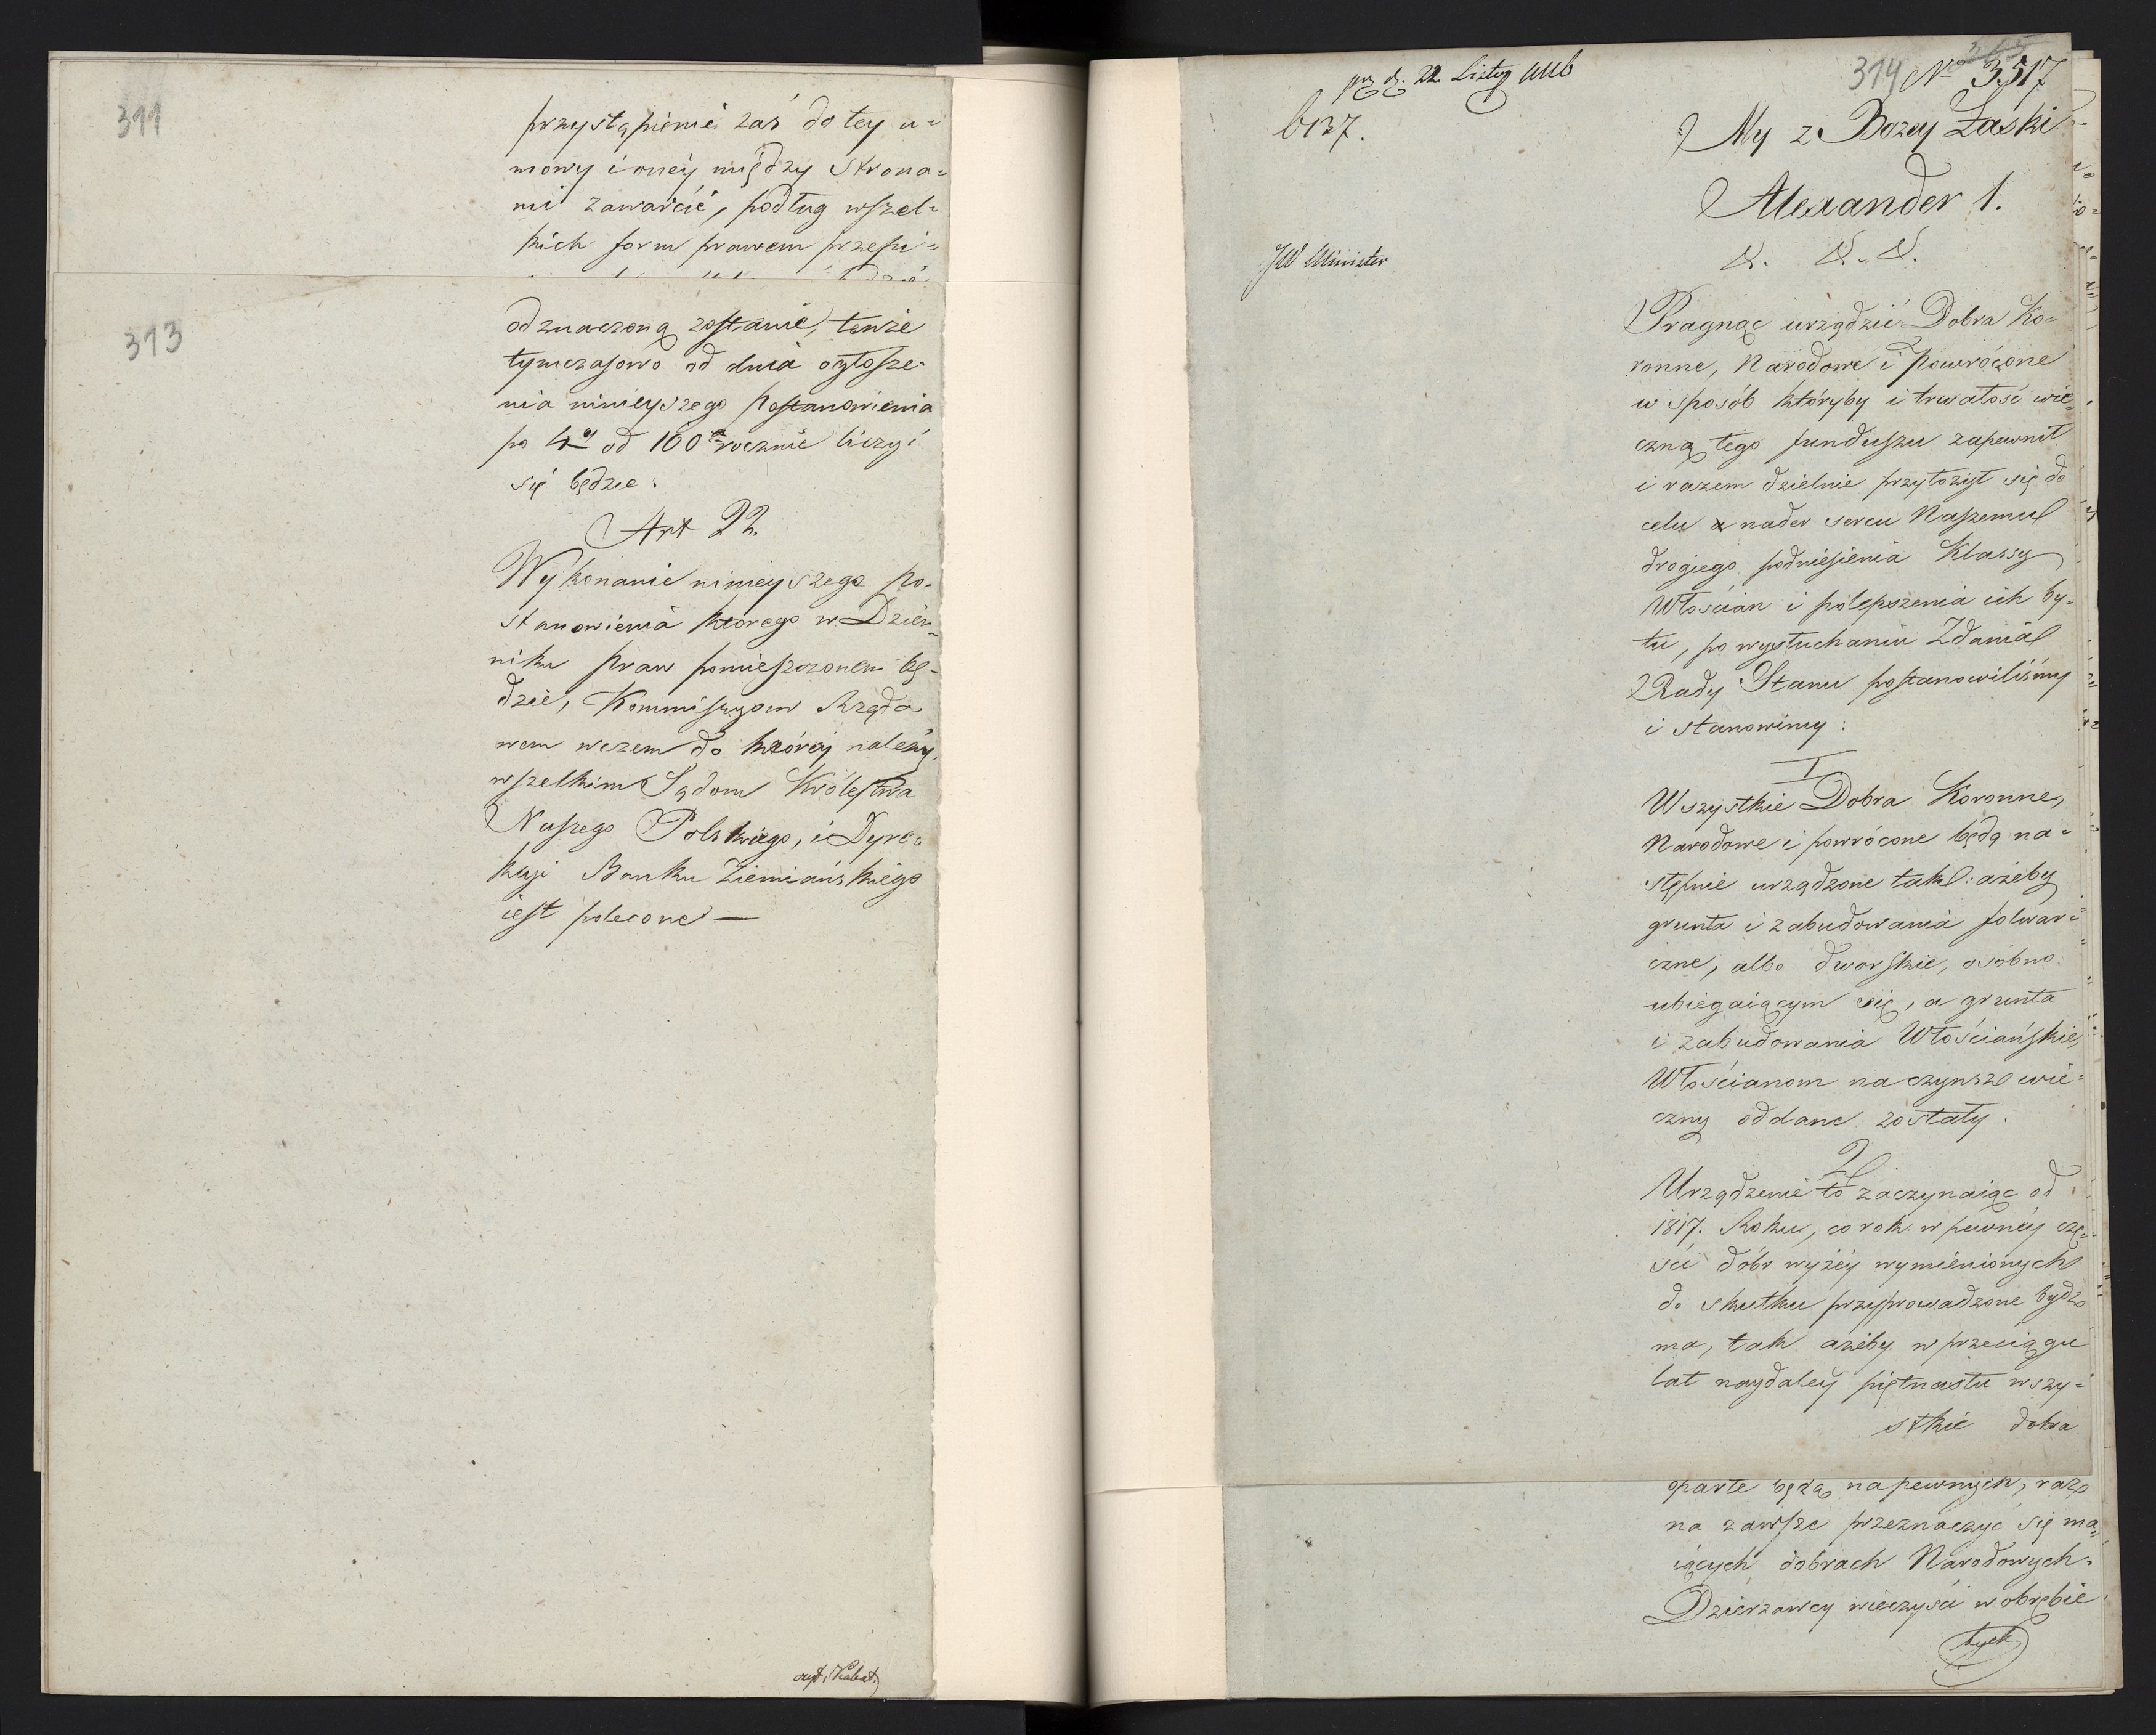 311
przystąpienie zaś do tey u=
mowy i oney między Strona=
mi zawarcie, podług wszel=
kich form prawem przepi=
313
odznaczoną zostanie, tenże
tymczasowo od dnia ogłosze-
nia ninieyszego postanowienia
po 4 od 100 rocznie liczyć
się będzie.
Art 22.
Wykonanie ninieyszego po-
stanowienia którego w Dzien-
niku praw pomieszczonem bę-
dzie, Kommissyom Rządo
wem wczem do którey należy,
wszelkim Sądom Królestwa
Naszego Polskiego, i Dyre-
kcyi Banku Ziemiańskiego
iest polecone —
d. 22 Listop
6137.
JW Minister
314 No 3517
My z Bozey Łaski
Alexander 1.
&. &. &.
Pragnąc urządzić Dobra Ko=
ronne, Narodowe i powrócone
w sposób któryby i trwałość wie=
czną tego funduszu zapewnił
i razem dzielnie przyłożył się do
celu nader sercu Naszemu
drogiego podniesienia Klassy
Włościan i polepszenia ich by=
tu, po wysłuchaniu Zdania
Rady Stanu postanowiliśmy
i stanowimy:
I
Wszystkie Dobra Koronne,
Narodowe i powrócone będą na=
stępnie urządzone tak: ażeby
grunta i zabudowania folwar=
czne, albo dworskie, osobno
ubiegaiącym się, a grunta
i zabudowania Włościańskie,
Włościanom na czynsz wie=
czny oddane zostały.
2
Urządzenie to zaczynaiąc od
1817. Roku, co rok w pewney czę=
ści dóbr wyżey wymienionych
do skutku przyprowadzone bydź
ma, tak ażeby w przeciągu
lat naydaley piętnastu wszy=
stkie dobra
oparte będą na pewnych, raz
na zawsze przeznaczyć się ma=
iących dobrach Narodowych.
Dzierzawcy wieczyści w obrębie
tych